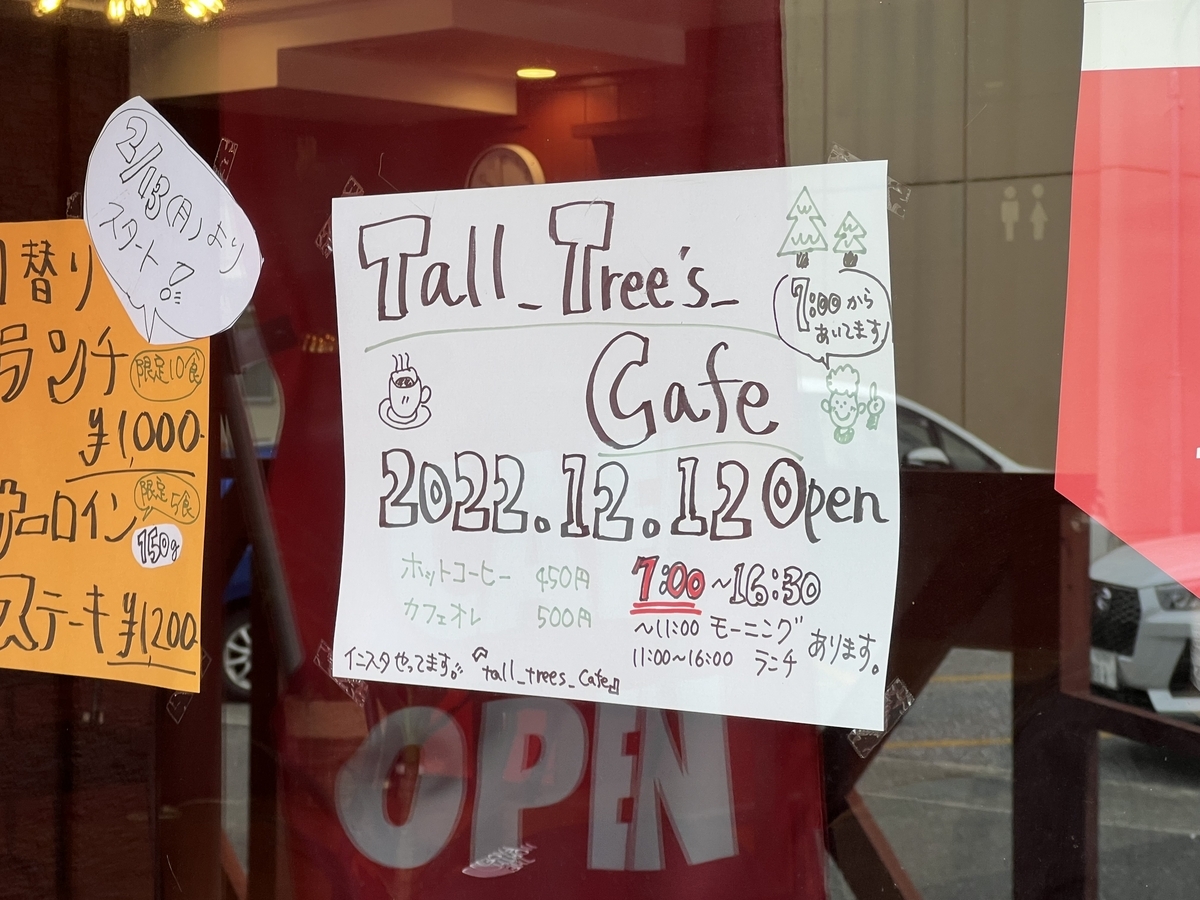 2/13(月)より
スタート!!
替り
ランチ
限定10食
¥1,000-
サーロイン
限定5食
150g
ステーキ ¥1,200-
Tall_Tree's_
Cafe
7:00から
あいてます
2022.12.12 Open
ホットコーヒー 450円
カフェオレ 500円
7:00~16:30
~11:00 モーニング
11:00~16:00 ランチ
あります。
インスタやってます。『tall_trees_cafe』
OPEN